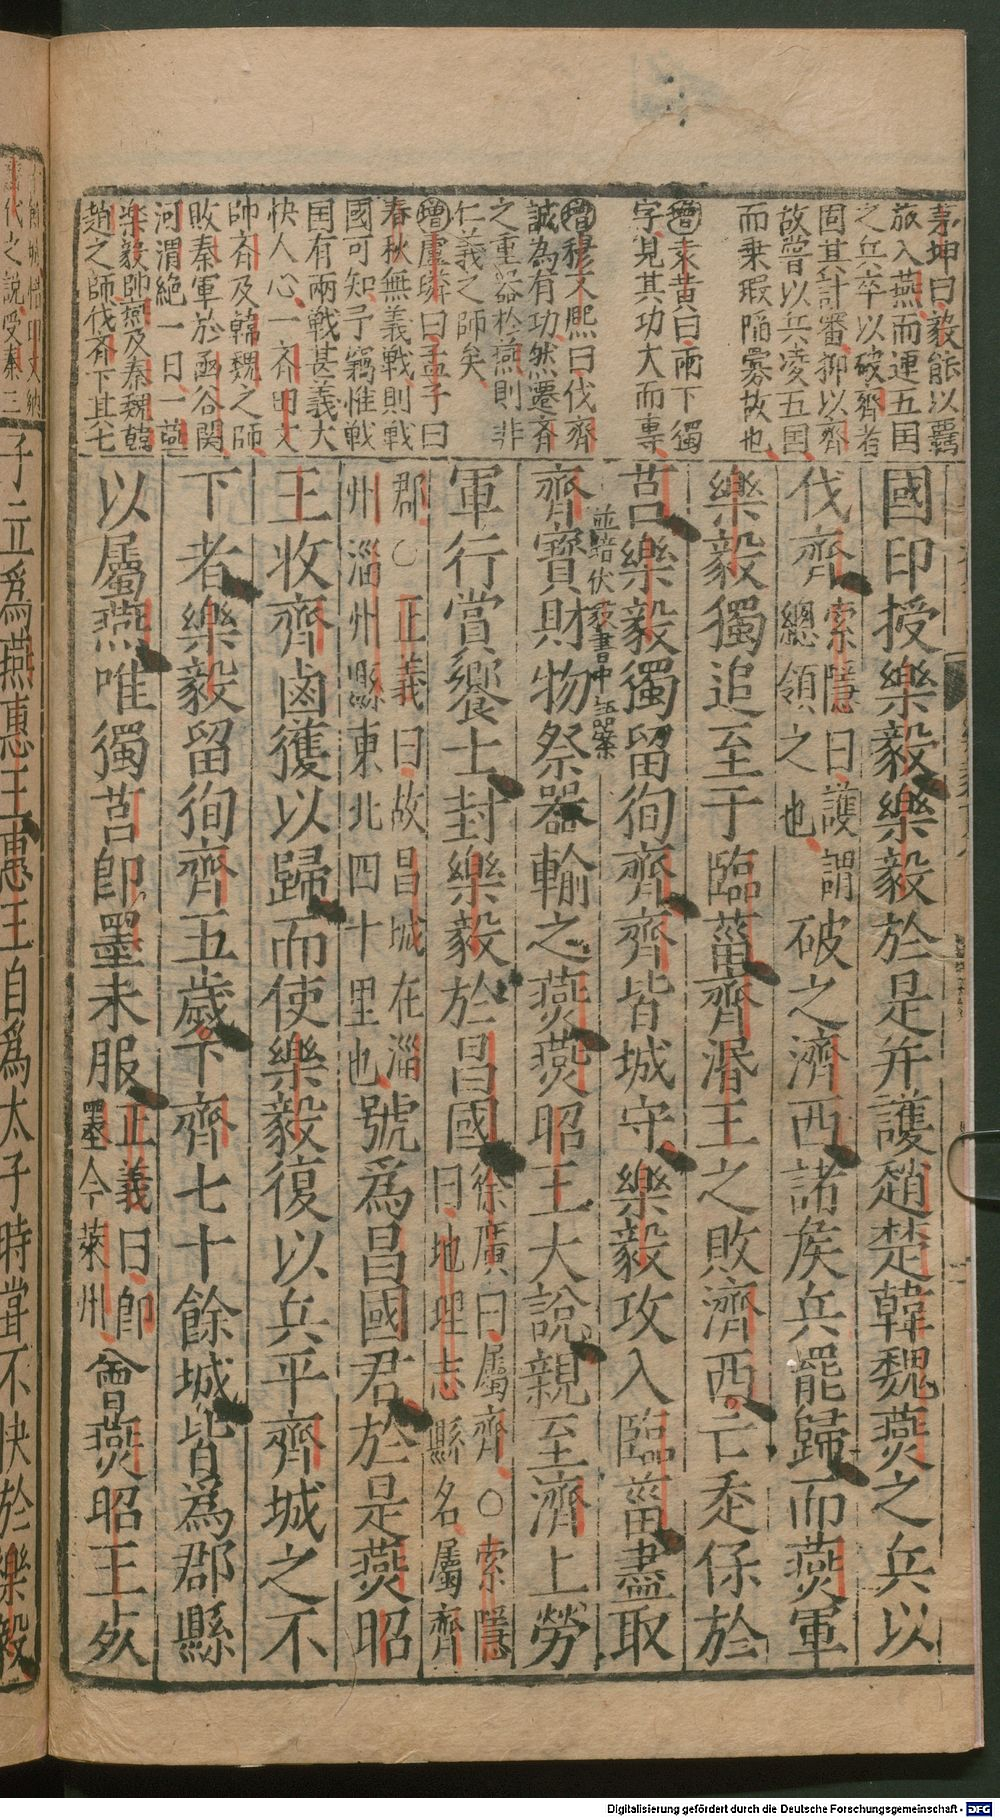 茅坤曰毅能以羈
旅入燕而連五国
之兵卒以破齊者
固其計審抑以齊
故嘗以兵凌五国
而乗瑕隙畧故也
增袁黄曰兩下獨
字見其功大而專
增穆文熙曰伐齊
誠為有功然遷齊
之重器於燕則非
仁義之師矣
增盧舜曰孟子曰
春秋無義戦則戦
國可知予竊惟戦
国有兩戦甚義大
快人心一齐田文
帥齐及韓魏之師
敗秦軍於函谷関
河渭絶一日一燕
楽毅帥燕及秦魏韓
趙之師伐斉下其七
國印授樂毅樂毅於是并護趙楚韓魏燕之兵以
伐齊索隱曰護謂
總領之也破之濟西諸矦兵罷歸而燕軍
樂毅獨追至于臨菑齊湣王之敗濟西亡走保於
莒樂毅獨留徇齊齊皆城守樂毅攻入臨菑盡取
並培伏毅書中語案
齊寳財物祭器輸之燕燕昭王大說親至濟上勞
軍行賞饗士封樂毅於昌國徐廣曰屬齊○索隱
曰地理志縣名屬齊
郡○正義曰故昌城在淄
州淄州縣東北四十里也號爲昌國君於是燕昭
王收齊鹵獲以歸而使樂毅復以兵平齊城之不
下者樂毅留徇齊五歲下齊七十餘城皆爲郡縣
以屬燕唯獨莒卽墨未服正義曰卽
墨今萊州會燕昭王死
十餘城惜田文納
蘇代之說受秦三
子立爲燕惠王惠王自爲太子時嘗不快於樂毅
Digitalisierung gefördert durch die Deutsche Forschungsgemeinschaft - DFG